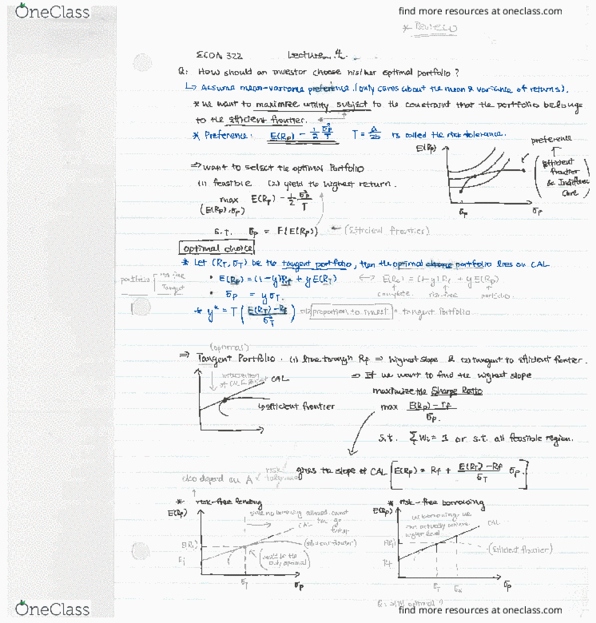 OneClass
find more resources at oneclass.com
* Review
ECON 322 Lecture 4.
Q: How should an investor choose his/her optimal portfolio?
↳ Assume mean-variance preference. (only cares about the mean & variance of returns).
* We want to maximize utility subject to the constraint that the portfolio belongs
to the efficient frontier.
* Preference: E(Rp) - 1/2 σp²/T T = is called the risk tolerance.
E(Rp)
preference
(Efficient frontier & Indifference Curve)
σp
⇒ want to select the optimal Portfolio
(1) feasible (2) yield the highest return.
max E(Rp) - 1/2 σp²/T
(E(Rp), σp)
S.t. σp = F(E(Rp)) ← (Efficient frontier)
optimal choice
* Let (RT, σT) be the tangent portfolio, then the optimal portfolio lies on CAL
portfolio risk-free Tangent
• E(Rp) = (1-y)Rf + y E(RT) ↔ E(Rc) = (1-y) Rf + y E(Rp)
complete risk-free portfolio
• σp = y σT.
* y* = T (E(RT) - Rf / σT²) proportion to invest tangent Portfolio
(optimal)
⇒ Tangent Portfolio. (1) line through Rf ⇒ highest slope & (2) tangent to efficient frontier.
CAL
efficient frontier
⇒ If we want to find the highest slope
maximize the Sharpe Ratio
max E(Rp) - rf / σp.
s.t. Σwi = 1 or s.t. all feasible region.
also depend on A risk tolerance
gives the slope of CAL [E(Rp) = Rf + E(RT) - Rf / σT σp]
* risk-free lending
E(Rp)
CAL
(efficient frontier)
σT
σp
* risk-free borrowing
E(Rp)
CAL
(Efficient frontier)
Rf
σT
σp
OneClass
find more resources at oneclass.com